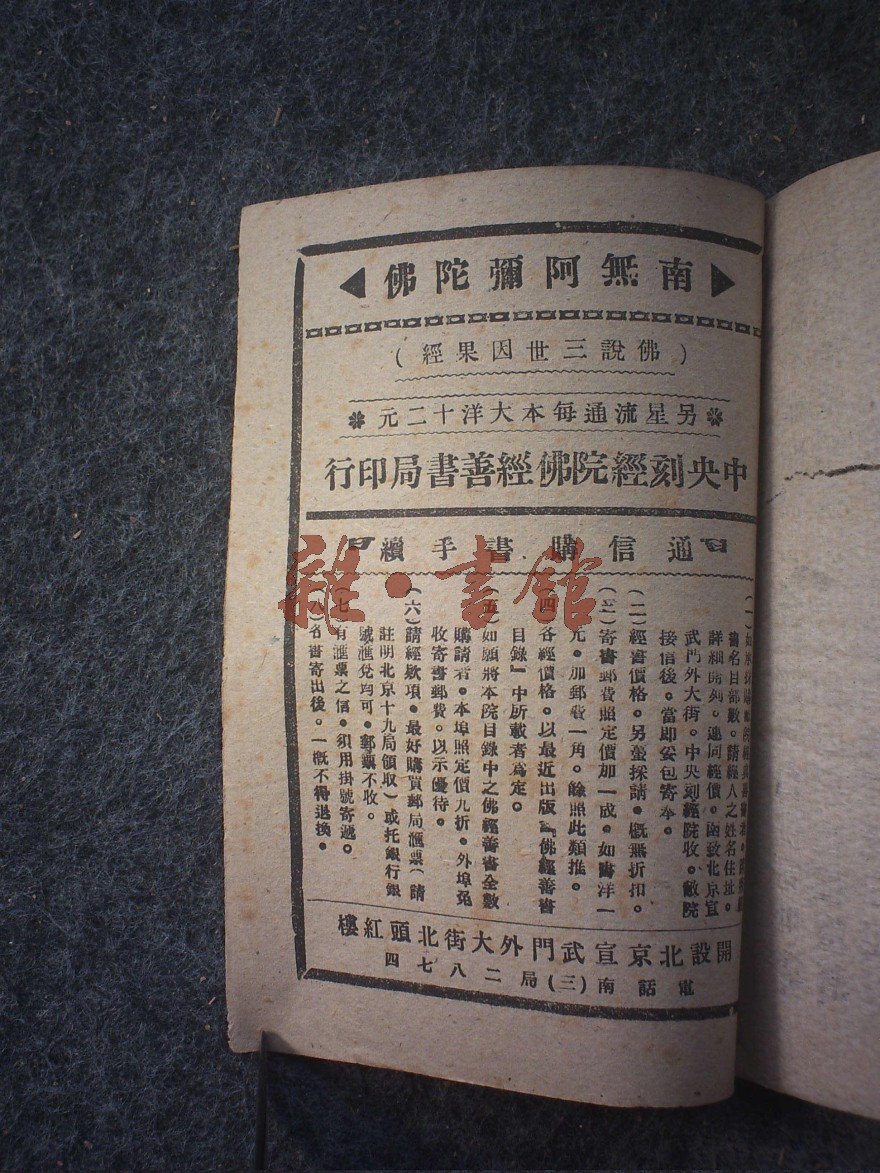 南無阿彌陀佛
(佛說三世因果經)
另星流通每本大洋十二元
中央刻經院佛經善書局印行
通信購書手續
書名目部數。請經人之姓名住址。
詳細開列。連同經價。函致北京宣
武門外大街。中央刻經院收。敝院
接信後。當即妥包寄奉。
(二)經書價格。另躉採請。概無折扣。
(三)寄書郵費照定價加一成。如書洋一
元。加郵費一角。餘照此類推。
(四)各經價格。以最近出版『佛經善書
目錄』中所載者為定。
(五)如願將本院目錄中之佛經善書全數
購請者。本埠照定價九折。外埠免
收寄書郵費。以示優待。
(六)請經欵項。最好購買郵局滙票(請
註明北京十九局領取)或托銀行銀
號滙兌均可。郵票不收。
(七)有滙票之信。須用掛號寄遞。
(八)各書寄出後。一概不得退換。
開設北京宣武門外大街北頭紅樓
電話南(三)局二八七四
雜·書館